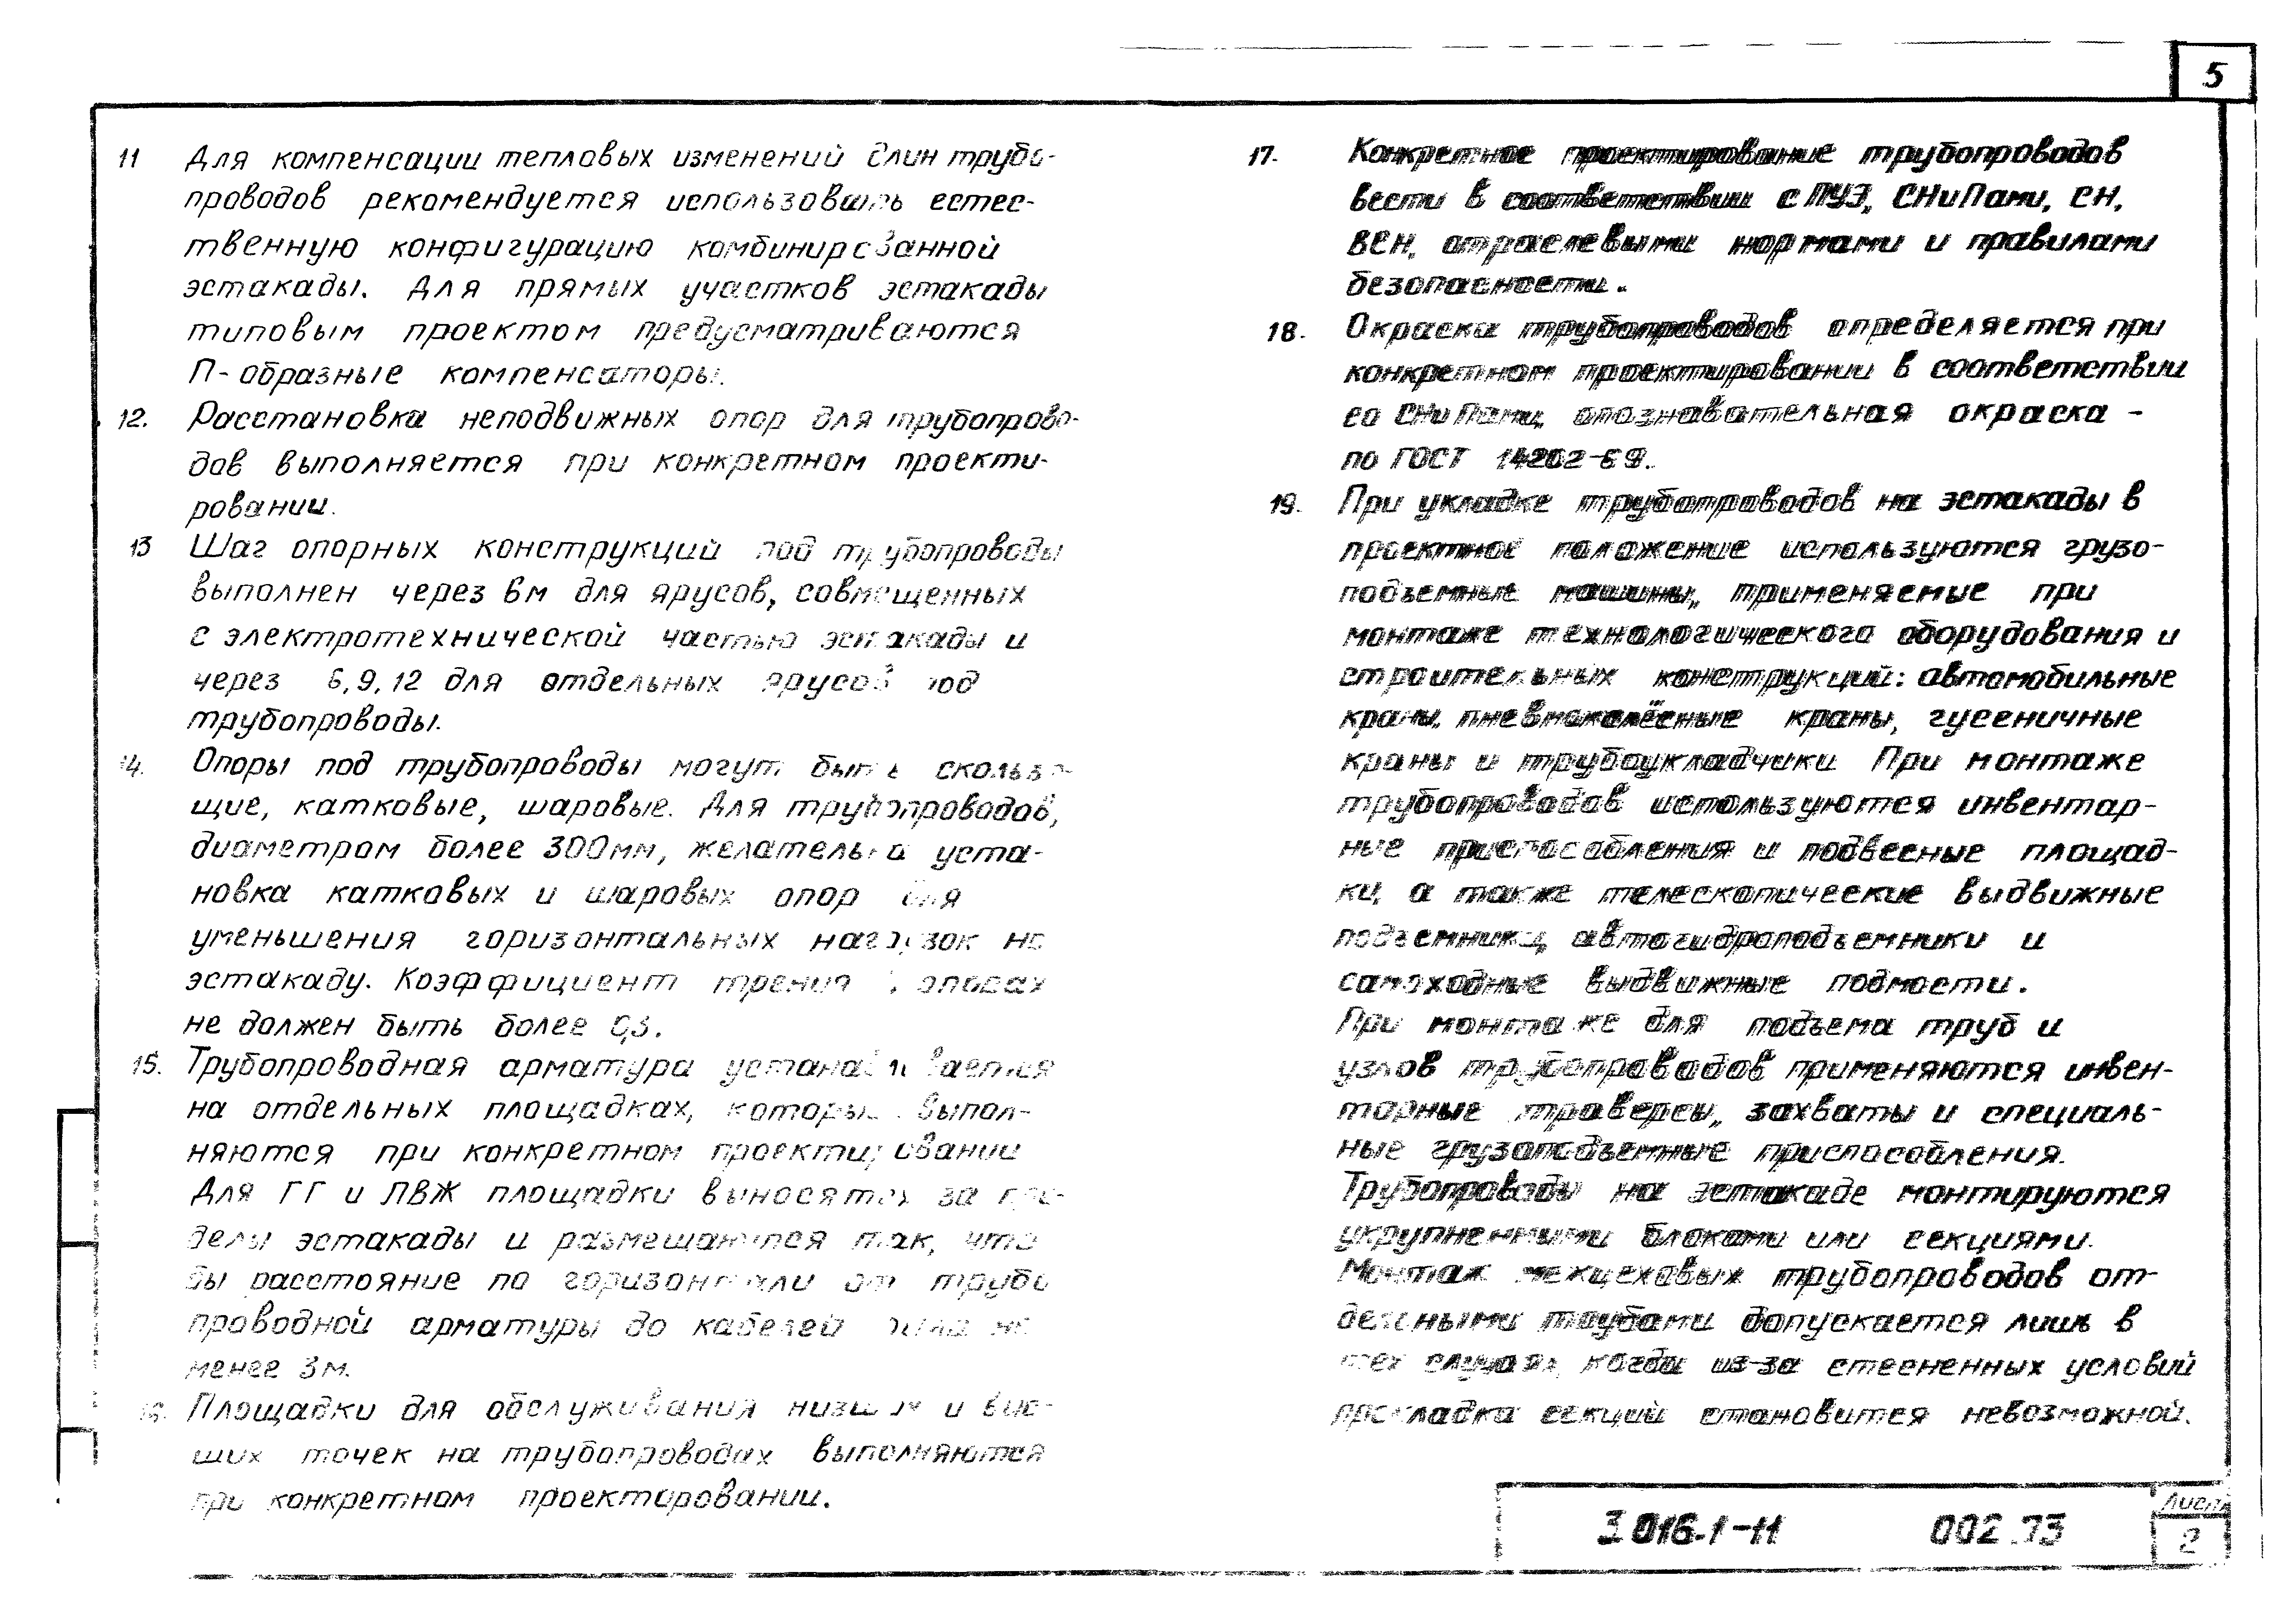 5
11 Для компенсации тепловых изменений длин трубо-
проводов рекомендуется использовать естес-
твенную конфигурацию комбинированной
эстакады. Для прямых участков эстакады
типовым проектом предусматриваются
П-образные компенсаторы.
12. Расстановка неподвижных опор для трубопрово-
дов выполняется при конкретном проекти-
ровании.
13 Шаг опорных конструкций под трубопроводы
выполнен через 6м для ярусов, совмещенных
с электротехнической частью эстакады и
через 6,9,12 для отдельных ярусов под
трубопроводы.
14. Опоры под трубопроводы могут быть скользя-
щие, катковые, шаровые. Для трубопроводов,
диаметром более 300мм, желательна уста-
новка катковых и шаровых опор для
уменьшения горизонтальных нагрузок на
эстакаду. Коэффициент трения в опорах
не должен быть более 0,3.
15. Трубопроводная арматура устанавливается
на отдельных площадках, которые выпол-
няются при конкретном проектировании
Для ГГ и ЛВЖ площадки выносятся за пре-
делы эстакады и размещаются так, что
бы расстояние по горизонтали от трубо
проводной арматуры до кабелей было не
менее 3м.
16. Площадки для обслуживания низших и выс-
ших точек на трубопроводах выполняются
при конкретном проектировании.
17. Конкретное проектирование трубопроводов
вести в соответствии с ПУЭ, СНиПами, СН,
ВСН, отраслевыми нормами и правилами
безопасности.
18. Окраска трубопроводов определяется при
конкретном проектировании в соответствии
со СНиПами, опознавательная окраска -
по ГОСТ 14202-69.
19. При укладке трубопроводов на эстакады в
проектное положение используются грузо-
подъемные машины, применяемые при
монтаже технологического оборудования и
строительных конструкций: автомобильные
краны, пневмоколёсные краны, гусеничные
краны и трубоукладчики При монтаже
трубопроводов используются инвентар-
ные приспособления и подвесные площад-
ки, а также телескопические выдвижные
подъемники, автогидроподъемники и
самоходные выдвижные подмости.
При монтаже для подъема труб и
узлов трубопроводов применяются инвен-
тарные траверсы, захваты и специаль-
ные грузоподъемные приспособления.
Трубопроводы на эстакаде монтируются
укрупненными блоками или секциями.
Монтаж межцеховых трубопроводов от-
дельными трубами допускается лишь в
тех случаях, когда из-за стесненных условий
прокладка секций становится невозможной.
3.016.1-11 002 ПЗ
Лист
2